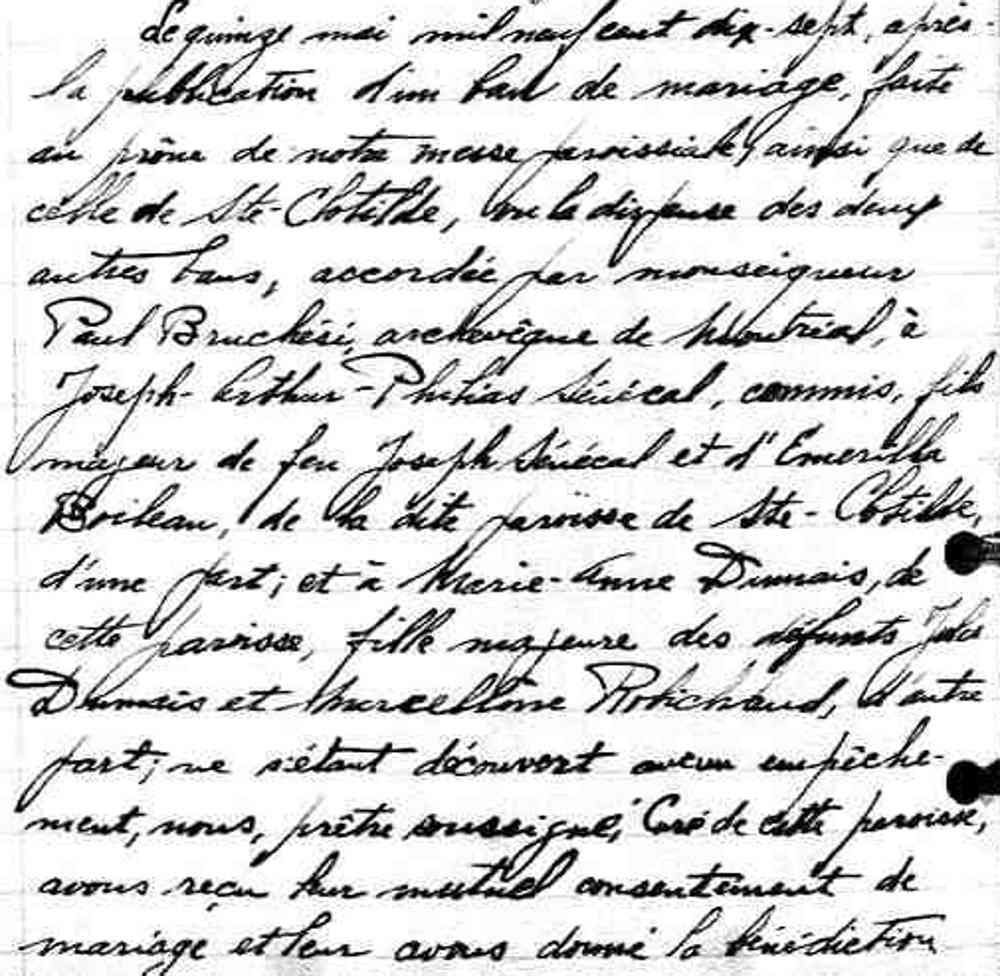 Le quinze mai mil neuf cent dix-sept, après
la publication d'un ban de mariage, faite
au prône de notre messe paroissiale, ainsi que de
celle de Ste-Clotilde, vu la dispense des deux
autres bans, accordée par monseigneur
Paul Bruchési, archevêque de Montréal, à
Joseph-Arthur-Philias Sénécal, commis, fils
majeur de feu Joseph Sénécal et d'Emerilla
Boileau, de la dite paroisse de Ste-Clotilde,
d'une part; et à Marie-Anne Dumais, de
cette paroisse, fille majeure des défunts Jules
Dumais et Marcelline Robichaud, d'autre
part; ne s'étant découvert aucun empêche-
ment, nous, prêtre soussigné, Curé de cette paroisse,
avons reçu leur mutuel consentement de
mariage et leur avons donné la bénédiction